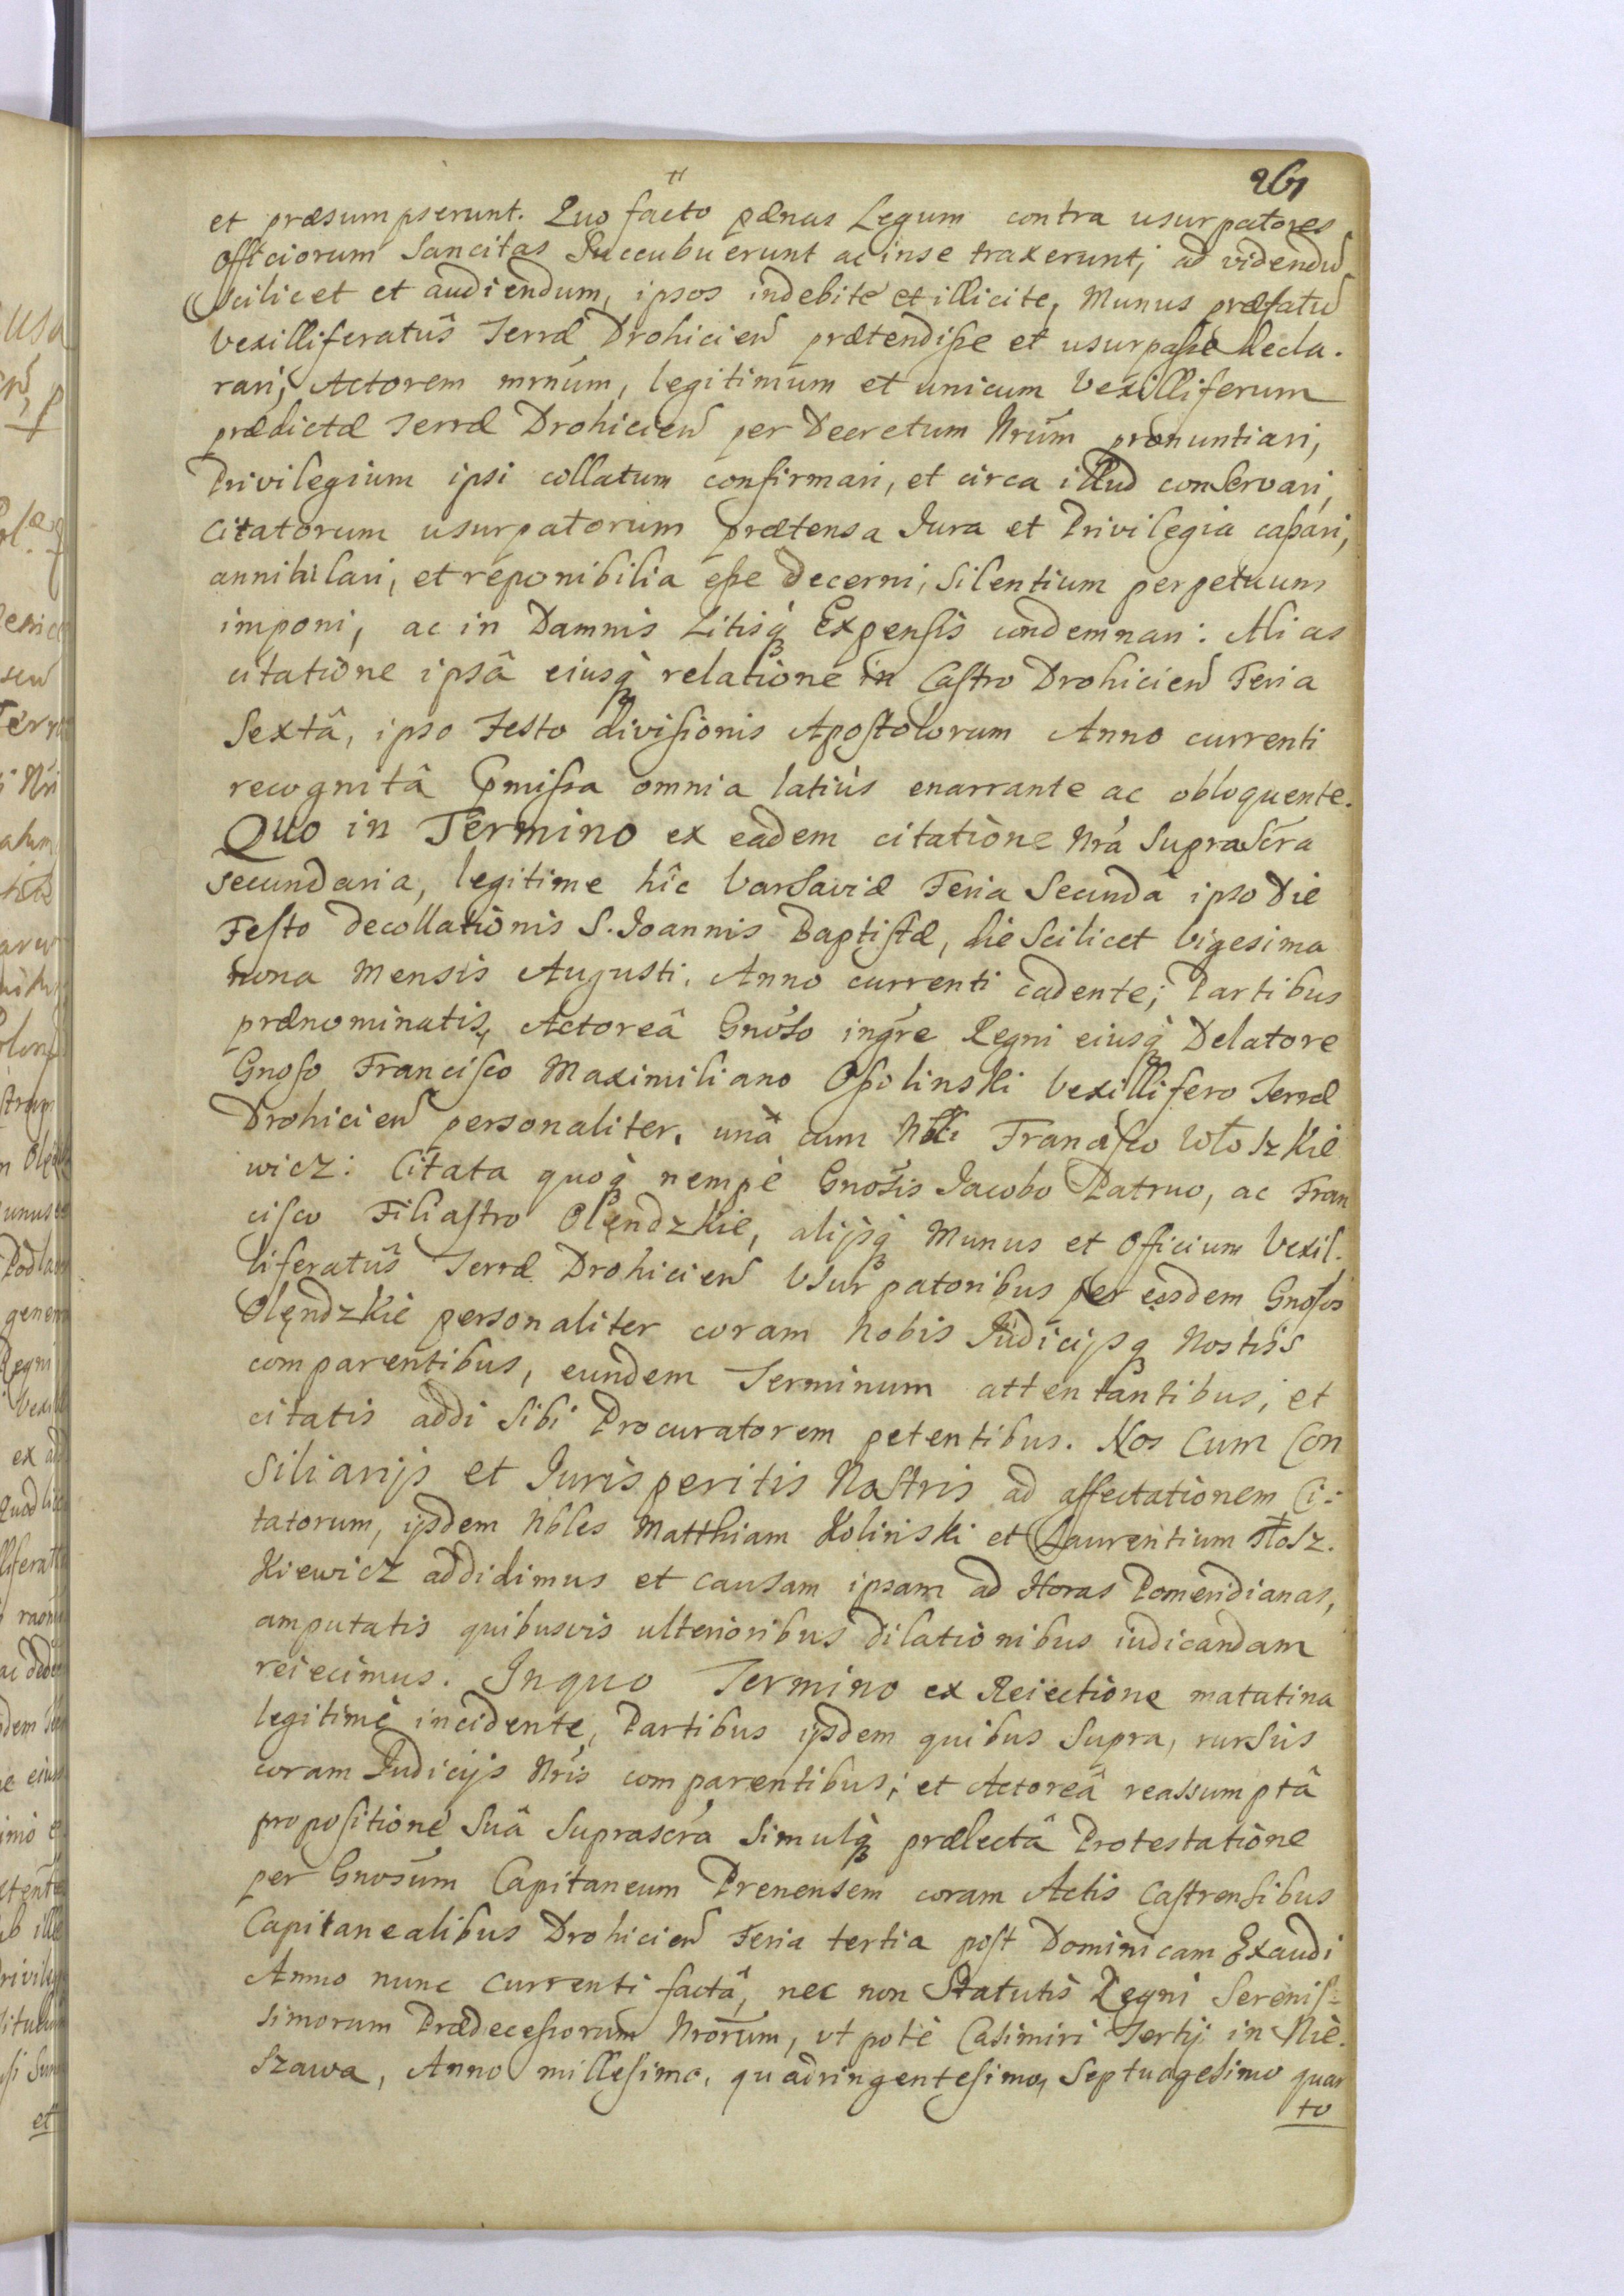 261
et præsumpserunt. Quo facto pænas Legum contra usurpatores
Officiorum Sancitas Succubuerunt ac in se traxerunt, ad videndũ
Scilicet et audiendum, ipsos indebitè et illicite, Munus præfatũ
Vexilliferatûs Terræ Drohicień prætendiße et usurpaße decla.
rari, Actorem mrnũm, legitimum et unicum Vexilliferum
prædictæ Terræ Drohicień per Decretum Nrũm pronuntiari,
Privilegium ipsi collatum confirmari, et circa illud conservari,
Citatorum usurpatorum prætensa Jura et Privilegia caßari,
annihilari, et reponibilia eße decerni, Silentium perpetuum
imponi, ac in Damnis Litisq̃ Expensis condemnari: Alias
citatione ipsâ eiusq̃ relatione in Castro Drohicień Feria
Sextâ, ipso Festo divisionis Apostolorum Anno currenti
recognitâ p̃mißa omnia latiùs enarrante ac obloquente.
Quo in Termino ex eadem citatione Nrá Suprascrá
secundaria, legitime hîc Varsaviæ Feria Secundâ ipso Die
Festo decollationis S. Joannis Baptistæ, die Scilicet Vigesima
nona Mensis Augusti. Anno currenti cadente; Partibus
prænominatis, Actoreâ Gnõso ingre Regni eiusq̃ Delatore
Gnoso Francisco Maximiliano Ossolinski Vexillifero Terræ
Drohicień personaliter. unâ cum Nbli Francisco Włoszkie
wicz: Citata quoq̃ nempè Gnosis Jacobo Patruo, ac Fran
cisco Filiastro Olędzkie, alijsq̃ Munus et Officium Vexil.
liferatûs Terræ Drohicień Usurpatoribus per eosdem Gnosos
Olęndzkie personaliter coram Nobis Judicijsq̃ Nostris
comparentibus, eundem Terminum attentantibus, et
citatis addi Sibi Procuratorem petentibus. Nos Cum Con
Siliarijs et Jurisperitis Nostris ad affectationem Ci:
tatorum, ijsdem Nbles Matthiam Koliński et Laurentium Płosz.
Kiewicz addidimus et causam ipsam ad Horas Pomeridianas,
amputatis quibusvis ulterioribus dilationibus iudicandam
reiecimus. In quo Termino ex Reiectione matatina
legitimè incidente, Partibus ijsdem quibus Supra, rursùs
coram Judicijs Nris comparentibus; et Actoreâ reassumptâ
propositione Suâ Suprascrá Simulq̃ prælectâ Protestatione
per Gnosum Capitaneum Prenensem coram Actis Castrensibus
Capitanealibus Drohicień Feria tertia post Dominicam Exaudi
Anno nunc currenti factâ, nec non Statutis Regni Serenis-
simorum Prædecessorum Nrorum, ut potè Casimiri Tertij in Nie.
szawa, Anno millesimo, quadringentesimo, Septuagesimo quar
to